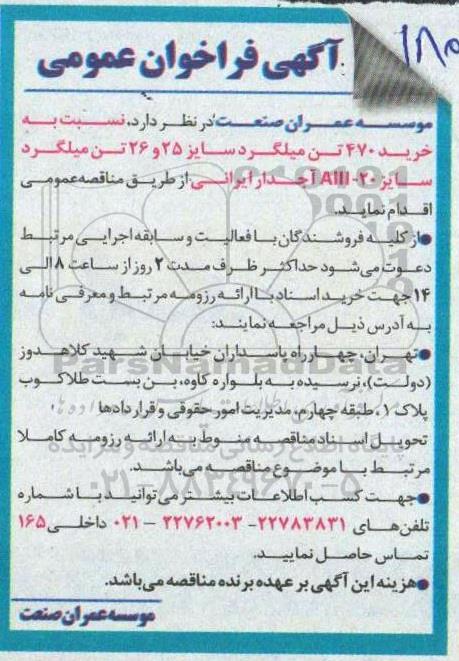 آگهی فراخوان عمومی
موسسه عمران صنعت در نظر دارد، نسبت به
خرید ۴۷۰ تن میلگرد سایز ۲۵ و ۲۶ تن میلگرد
سایز ۲۰-AIII آجدار ایرانی از طریق مناقصه عمومی
اقدام نماید.
●از کلیه فروشندگان با فعالیت و سابقه اجرایی مرتبط
دعوت می‌شود حداکثر ظرف مدت ۲ روز از ساعت ۸ الی
۱۴ جهت خرید اسناد با ارائه رزومه مرتبط و معرفی نامه
به آدرس ذیل مراجعه نمایند:
●تهران، چهارراه پاسداران خیابان شهید کلاهدوز
(دولت)، نرسیده به بلواره کاوه، بن بست طلاکوب
پلاک ۱، طبقه چهارم، مدیریت امور حقوقی و قراردادها
تحویل اسناد مناقصه منوط به ارائه رزومه کاملا
مرتبط با موضوع مناقصه می‌باشد.
●جهت کسب اطلاعات بیشتر می‌توانید با شماره
تلفن‌های ۲۲۷۸۳۸۳۱- ۲۲۷۶۲۰۰۳ – ۰۲۱ داخلی ۱۶۵
تماس حاصل نمایید.
●هزینه این آگهی بر عهده برنده مناقصه می‌باشد.
موسسه عمران صنعت
ParsNamadData
پایگاه اطلاع رسانی مناقصه و مزایده
۰۲۱-۸۸۳۴۹۶۷۰-۵